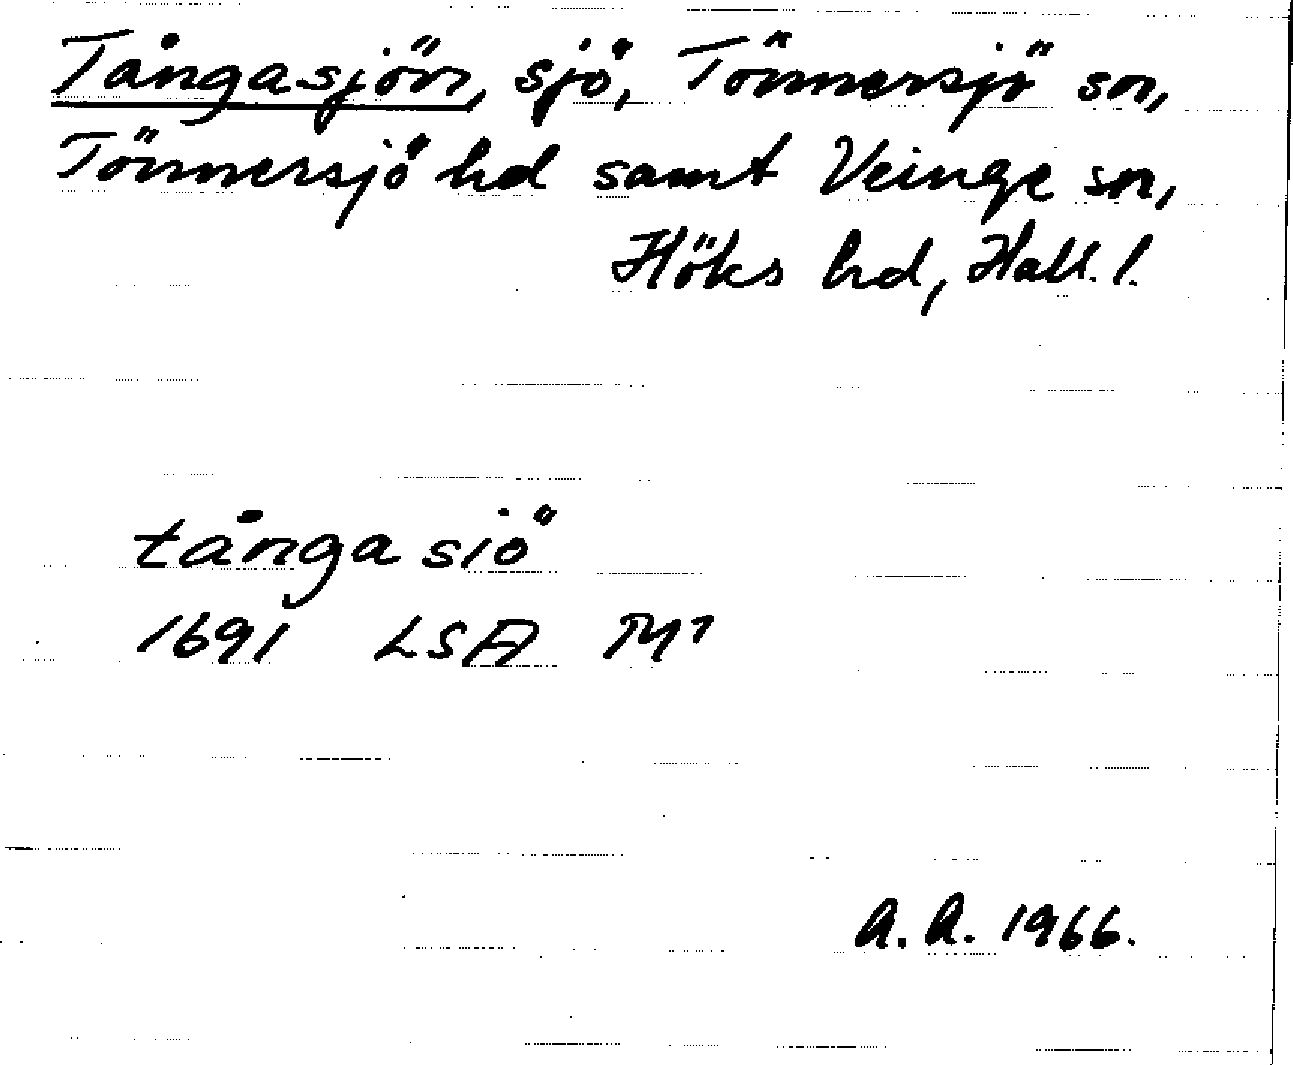 Tångasjön, sjö, Tönnersjö sn,
Tönnersjö hd samt Veinge sn,
Höks hd, Hall. l.
tånga siö
1691 LSA M⁷
A. A. 1966.